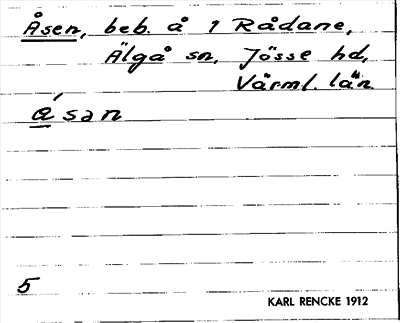 Åsen, beb. å 1 Rådane,
Älgå sn, Jösse hd,
Värml. län.
ɑ́san
5
KARL RENCKE 1912